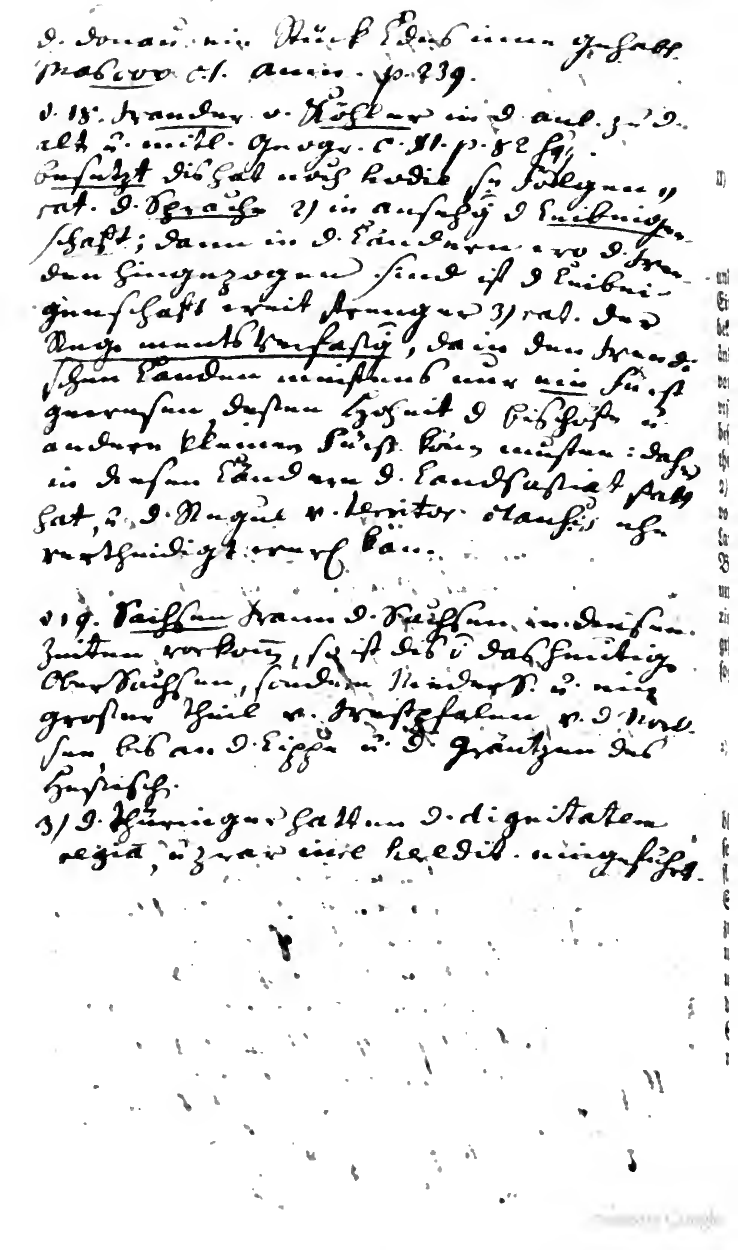 d. donau ein Stück Lds inne gehabt.
Mascov c. l. ann. p. 239.
v. 18. Wenden v. Köhler in d. anl. zu d.
alt u. mitl. Geogr. c. II. p. 82 sqq.
besetzt dis hat noch hodie 3 Folgen 1)
rat. d. Sprache 2) in ansehg d Leibeigen-
schaft; dann in d. Ländern wo d. Wen-
den hingezogen sind ist d Leibei-
genschaft weit strenger 3) rat. der
Regimentsverfassg, da in den Wendi-
schen Landen meistens nur ein Fürst
gewesen, dessen Hoheit d bischöfe u.
andere kleinen Fürst. müsten: daher
in diesen Ländern d. Landsassiat statt
hat, u. d. Regul v. territor. clausis ehr
vertheidigt werd kan.
v 19. Sachsen wann d. Sachsen in diesen
Zeiten vorkom̄, so ist dis das heutige
OberSachsen, sondern NiederS. u. ein
großer Theil v. Westpfalen, v. d.
sen bis an d. Lippe u. d. Gräntzen des
Hessisch.
3) d. Thüringer hatten d. dignitatem
regiā, u zwar hered. eingeführt.